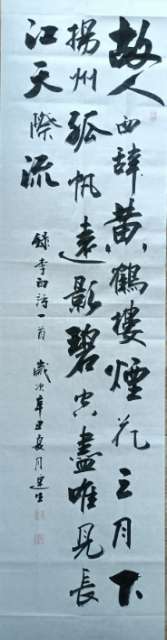 故人西辞黄鹤楼烟花三月下
揚州孤帆遠影碧空盡唯見長
江天際流
録李白詩一首 歲次辛丑夏月建生